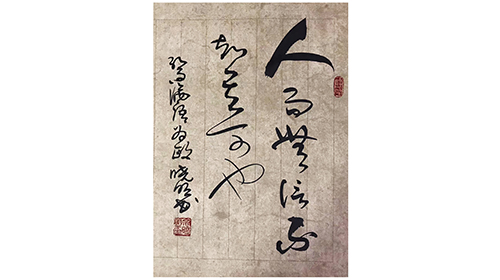 人而無信不
知其可也
論語為政 晓 书